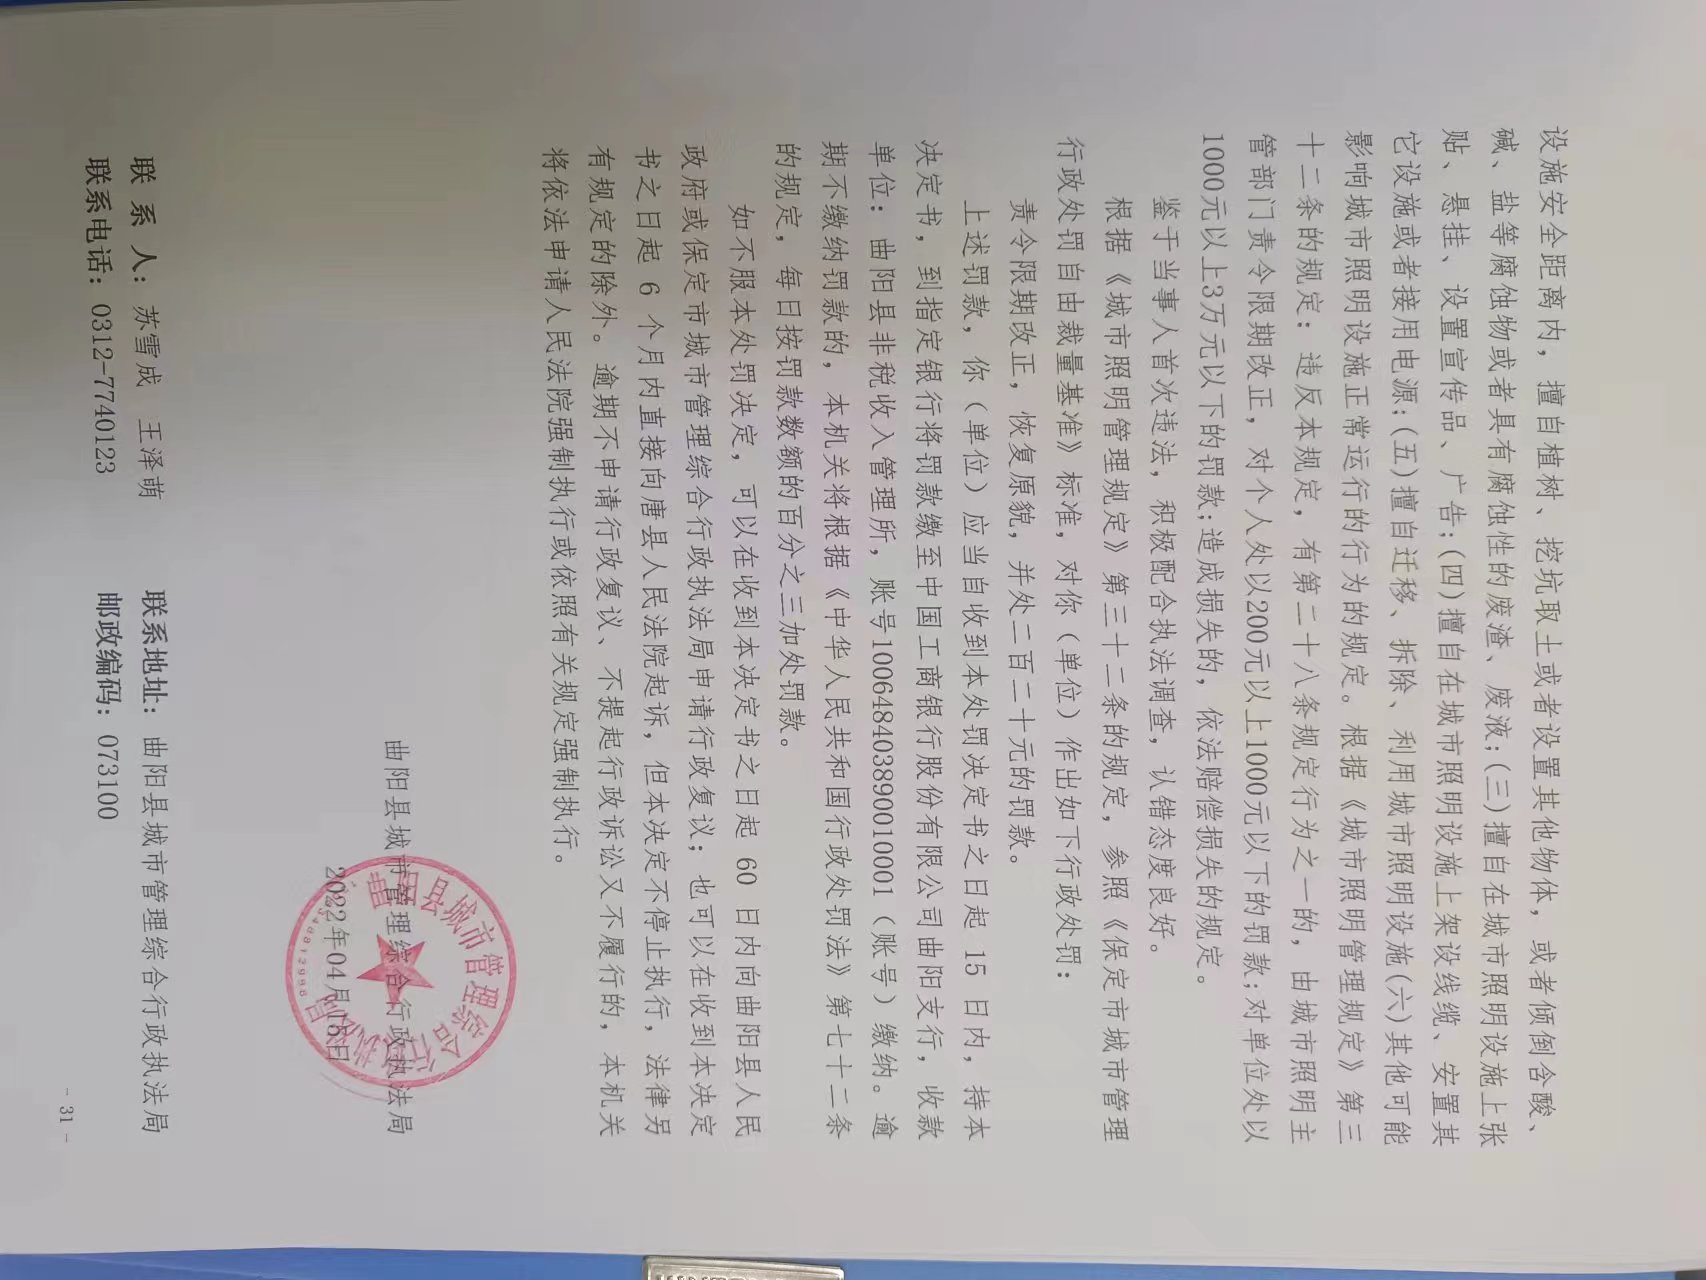 设施安全距离内，擅自植树、挖坑取土或者设置其他物体，或者倾倒含酸、
碱、盐等腐蚀物或者具有腐蚀性的废渣、废液;(三)擅自在城市照明设施上张
贴、悬挂、设置宣传品、广告;(四)擅自在城市照明设施上架设线缆、安置其
它设施或者接用电源;(五)擅自迁移、拆除、利用城市照明设施(六)其他可能
影响城市照明设施正常运行的行为的规定。根据《城市照明管理规定》第三
十二条的规定：违反本规定，有第二十八条规定行为之一的，由城市照明主
管部门责令限期改正，对个人处以200元以上1000元以下的罚款;对单位处以
1000元以上3万元以下的罚款;造成损失的，依法赔偿损失的规定。
鉴于当事人首次违法，积极配合执法调查，认错态度良好。
根据《城市照明管理规定》第三十二条的规定，参照《保定市城市管理
行政处罚自由裁量基准》标准，对你（单位）作出如下行政处罚：
责令限期改正，恢复原貌，并处二百二十元的罚款。
上述罚款，你（单位）应当自收到本处罚决定书之日起 15 日内，持本
决定书，到指定银行将罚款缴至中国工商银行股份有限公司曲阳支行，收款
单位：曲阳县非税收入管理所，账号100648403890010001（账号）缴纳。逾
期不缴纳罚款的，本机关将根据《中华人民共和国行政处罚法》第七十二条
的规定，每日按罚款数额的百分之三加处罚款。
如不服本处罚决定，可以在收到本决定书之日起 60 日内向曲阳县人民
政府或保定市城市管理综合行政执法局申请行政复议；也可以在收到本决定
书之日起 6 个月内直接向唐县人民法院起诉，但本决定不停止执行，法律另
有规定的除外。逾期不申请行政复议、不提起行政诉讼又不履行的，本机关
将依法申请人民法院强制执行或依照有关规定强制执行。
曲阳县城市管理综合行政执法局
2022年04月18日
曲阳县城市管理综合行政执法局
联 系 人：苏雪成 王泽萌 联系地址：曲阳县城市管理综合行政执法局
联系电话：0312-7740123 邮政编码：073100
- 31 -